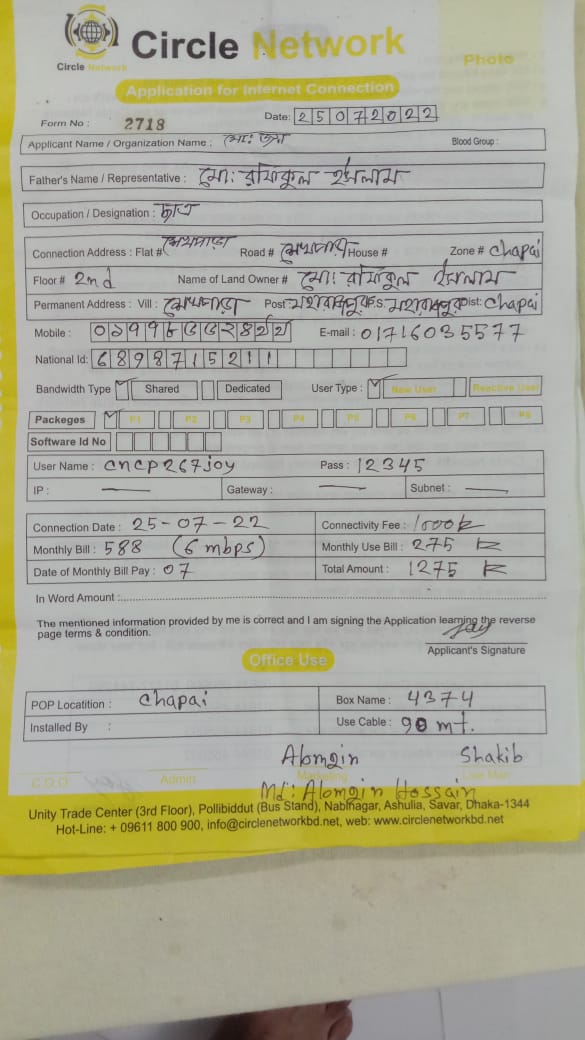 Circle Network
Circle Network
Photo
Application for Internet Connection
Form No : 2718
Date: 25072022
Applicant Name / Organization Name : মো: জয়
Blood Group :
Father's Name / Representative : মো: রফিকুল ইসলাম
Occupation / Designation : ছাত্র
Connection Address : Flat# শেখপাড়া Road # শেখপাড়া House # Zone # chapai
Floor# 2nd Name of Land Owner # মো: রফিকুল ইসলাম
Permanent Address : Vill : শেখপাড়া Post: মহারাজপুর P.S: মহারাজপুর Dist: Chapai
Mobile : E-mail : 01716035577
National Id: 6898715211
Bandwidth Type Shared Dedicated User Type : New User Reactive User
Packeges P1 P2 P3 P4 P5 P6 P7 P8
Software Id No
User Name : cncp267joy Pass : 12345
IP : — Gateway : — Subnet : —
Connection Date : 25-07-22 Connectivity Fee : 1000
Monthly Bill : 588 (6 mbps) Monthly Use Bill : 275
Date of Monthly Bill Pay : 07 Total Amount : 1275
In Word Amount :
The mentioned information provided by me is correct and I am signing the Application learning the reverse
page terms & condition.
Joy
Applicant's Signature
Office Use
POP Locatition : Chapai Box Name : 4374
Installed By : Use Cable : 90 mt.
Alomgin Shakib
C.O.O Admin Marketing Line Man
Md: Alomgin Hossain
Unity Trade Center (3rd Floor), Pollibiddut (Bus Stand), Nabinagar, Ashulia, Savar, Dhaka-1344
Hot-Line: + 09611 800 900, info@circlenetworkbd.net, web: www.circlenetworkbd.net